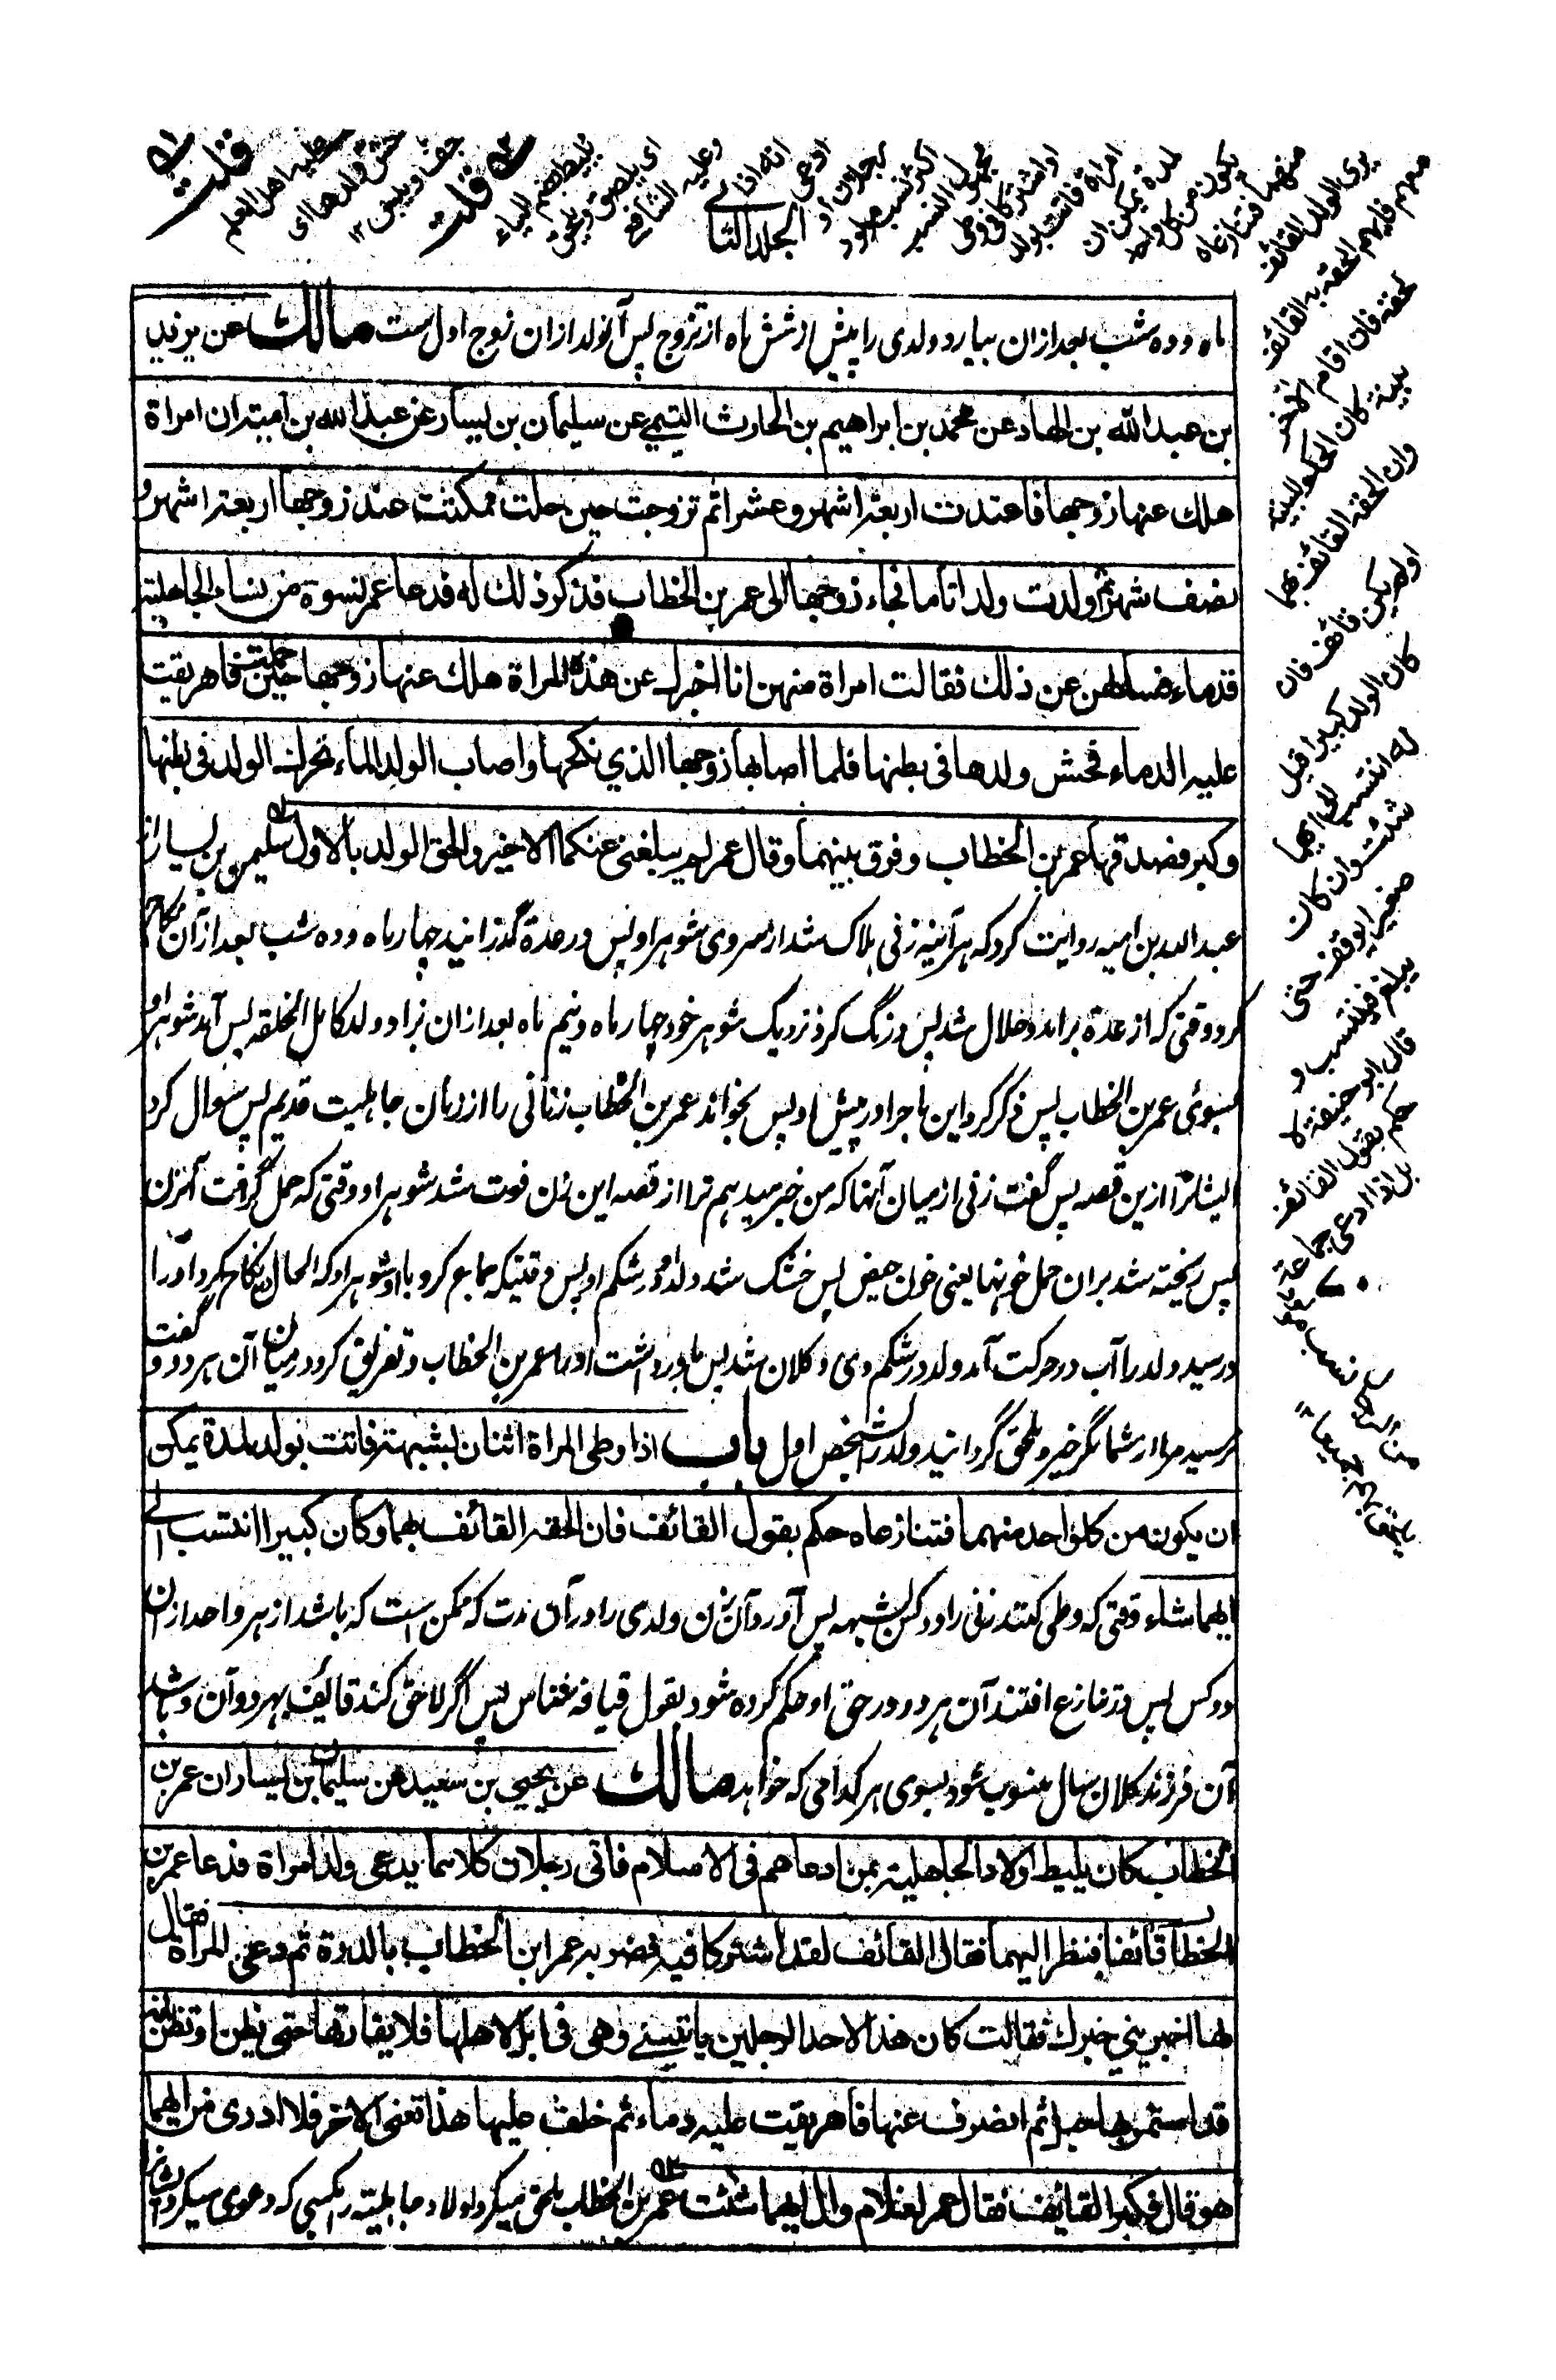 الجلد الثاني
ماه و ده شب بعد ازان بیارد ولدی را پیش از شش ماه از تزوج پس آنولد ازان زوج اول ست مالك عن يزيد
بن عبد الله بن الهاد عن محمد بن ابراهيم بن الحارث التيمي عن سليمان بن يسار عن عبد الله بن امية ان امراة
هلك عنها زوجها فاعتدت اربعة اشهر وعشرا ثم تزوجت حين حلت فمكثت عند زوجها اربعة اشهر و
نصف شهر ثم ولدت ولدا تاما فجاء زوجها الى عمر بن الخطاب فذكر ذلك له فدعا عمر نسوة من نساء الجاهلية
قدماء فسالهن عن ذلك فقالت امراة منهن انا اخبرك عن هذه المراة هلك عنها زوجها حين حملت فاهريقت
عليه الدماء فحش ولدها في بطنها فلما اصابها زوجها الذي نكحها واصاب الولد الماء تحرك الولد في بطنها
وكبر فصدقها عمر بن الخطاب وفرق بينهما وقال عمر لم يبلغني عنكما الا خير والحق الولد بالاول سليمن بن يسار از
عبد الله بن امیه روایت کرد که هر آئینه زنی هلاک شد از سروی شوهر او پس در عدة گذرانید چهار ماه و ده شب بعد ازان نکاح
کرد وقتی که از عدة برآمد و حلال شد پس درنگ کرد نزدیک شوهر خود چهار ماه و نیم ماه بعد ازان بزاد ولد کامل الخلقه پس آمد شوهر او
بسوئی عمر بن الخطاب پس ذکر کرد این ماجرا در پیش او پس بخواند عمر بن الخطاب زنانی را از زنان جاهلیت قدیم پس سوال کرد
ایشانرا ازین قصه پس گفت زنی از میان آنها که من خبر میدهم ترا از قصه این زن فوت شد شوهر او وقتی که حمل گرفت آنزن
پس ریخته شد بران حمل خونها یعنی خون حیض پس خشک شد ولد او در شکم او پس وقتیکه جماع کرد با او شوهر او که الحال نکاح کرد اورا
و رسید ولد را آب در حرکت آمد ولد در شکم وی و کلان شد پس باور داشت اورا عمر بن الخطاب و تفریق کرد در میان آن هر دو و گفت
نرسید مرا از شما مگر خیر و ملحق گردانید ولد را بشخص اول باب اذا وطى المراة اثنان بشبهة فاتت بولد لمدة يمكن
ان يكون من كل واحد منهما فتنازعاه حكم بقول القائف فان الحقه القائف بهما وكان كبيرا انتسب الى
ايهما شاء وقتی که وطی کنند زنی را دو کس بشبهه پس آورد آن زن ولدی را در آن مدت که ممکن است که باشد از هر واحد ازان
دو کس پس در تنازع افتند آن هر دو در حق او حکم کرده شود بقول قیافه شناس پس اگر لاحق کند قائف بهر دو آن و باشد
آن فرزند کلان سال منسوب شود بسوی هر کدامی که خواهد مالك عن يحيى بن سعيد عن سليمان بن يسار ان عمر بن
الخطاب كان يليط اولاد الجاهلية بمن ادعاهم في الاسلام فاتى رجلان كلاهما يدعى ولد امراة فدعا عمر بن
الخطاب قائفا فنظر اليهما فقال القائف لقد اشتركا فيه فضربه عمر ابن الخطاب بالدرة ثم دعى المراة فقال
لها اخبريني خبرك فقالت كان هذا لاحد الرجلين ياتيني وهي في ابل لاهلها فلا يفارقها حتى يظن وتظن انه
قد استمر بها حبل ثم انصرف عنها فاهريقت عليه دماء ثم خلف عليها هذا تعنى الاخر فلا ادرى من ايهما
هو قال فكبر القائف فقال عمر للغلام وال ايهما شئت عمر بن الخطاب ملحق میکرد اولاد جاهلیته را بکسی که دعوی میکرد ایشانرا
قلت
عليه اهل العلم
حش ولدها اى
جف ويبس ١٢
قلت
يليط بضم الياء
اى يلصق ويلحق
وعليه الشافعي
انه اذا
ادعى
رجلان او
اكثر نسب مولود
مجهول النسب
او اشتركا في وطى
امراة فاتت بولد
لمدة يمكن ان
يكون من كل واحد
منهما فتنازعاه
يرى الولد القائف
معهم فايهم الحقه به القائف
لحقه فان اقام الاخر
بينة كان الحكم للبينة
وان الحقه القائف بهما
او لم يكن قائف فان
كان الولد كبيرا قيل
له انتسب الى ايهما
شئت وان كان
صغيرا يوقف حتى
يبلغ فينتسب و
قال ابو حنيفة لا
حكم بقول القائف
بل اذا ادعى جماعة
نسب